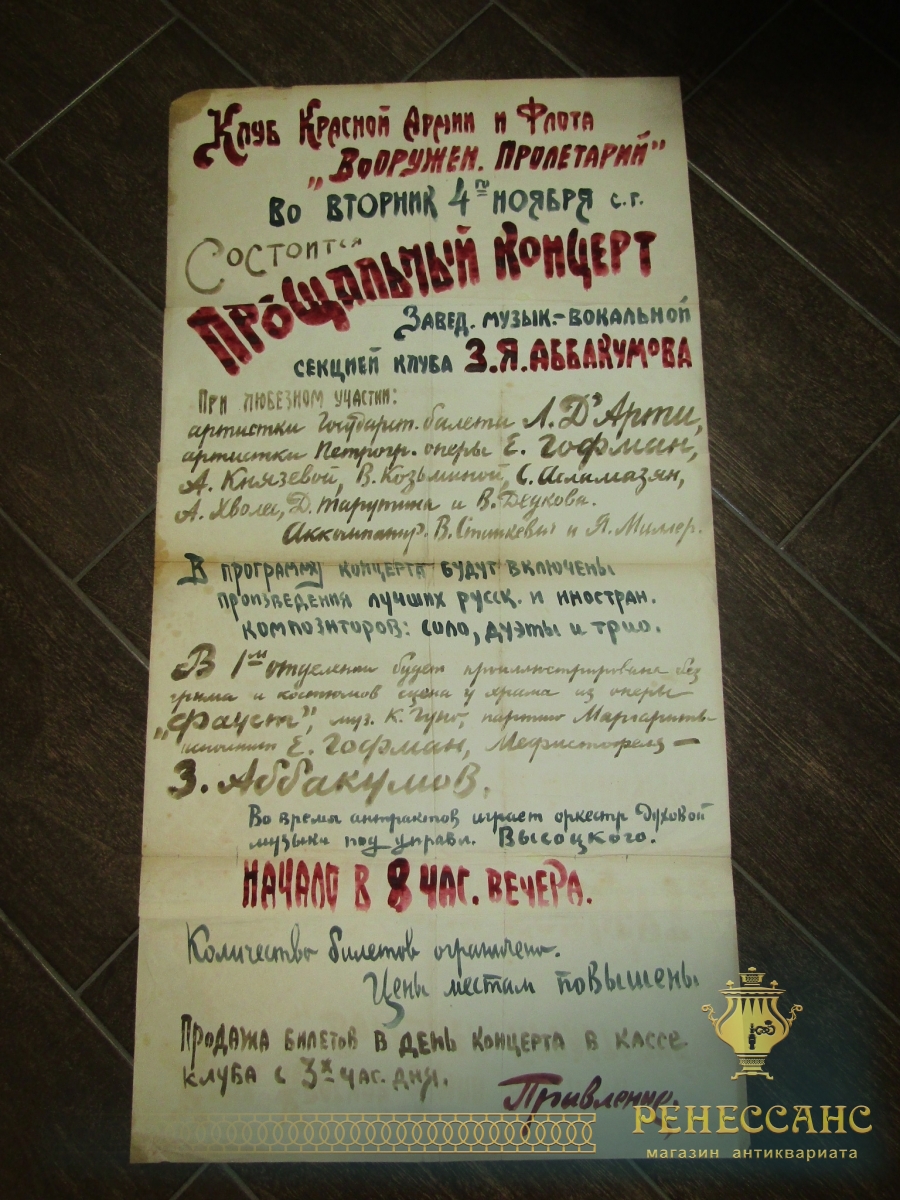 Клуб Красной Армии и Флота
„Вооружен. Пролетарий"
Во вторник 4го ноября с.г.
Состоится
Прощальный концерт
Завед. музык.-вокальной
секцией клуба З.Я. Аббакумова
При любезном участии:
артистки Государст. балета Л. Д'Арти,
артистки Петрогр. оперы Е. Гофман,
А. Князевой, В. Козьминой, С. Асламазян,
А. Хволес, Д. Тарутина и В. Деукова.
Аккомпатир. В. Ститкевич и Я. Миллер.
В программу концерта будут включены
произведения лучших русск. и иностран.
композиторов: соло, дуэты и трио.
В 1м отделении будет проиллюстрирована без
грима и костюмов сцена у храма из оперы
„Фауст", муз. К. Гуно, партию Маргариты
исполнит Е. Гофман, Мефистофеля —
З. Аббакумов.
Во время антрактов играет оркестр духовой
музыки под управл. Высоцкого.
Начало в 8 час. вечера.
Количество билетов ограничено.
Цены местам повышены
Продажа билетов в день концерта в кассе
клуба с 3х час. дня.
Правление.
РЕНЕССАНС
магазин антиквариата